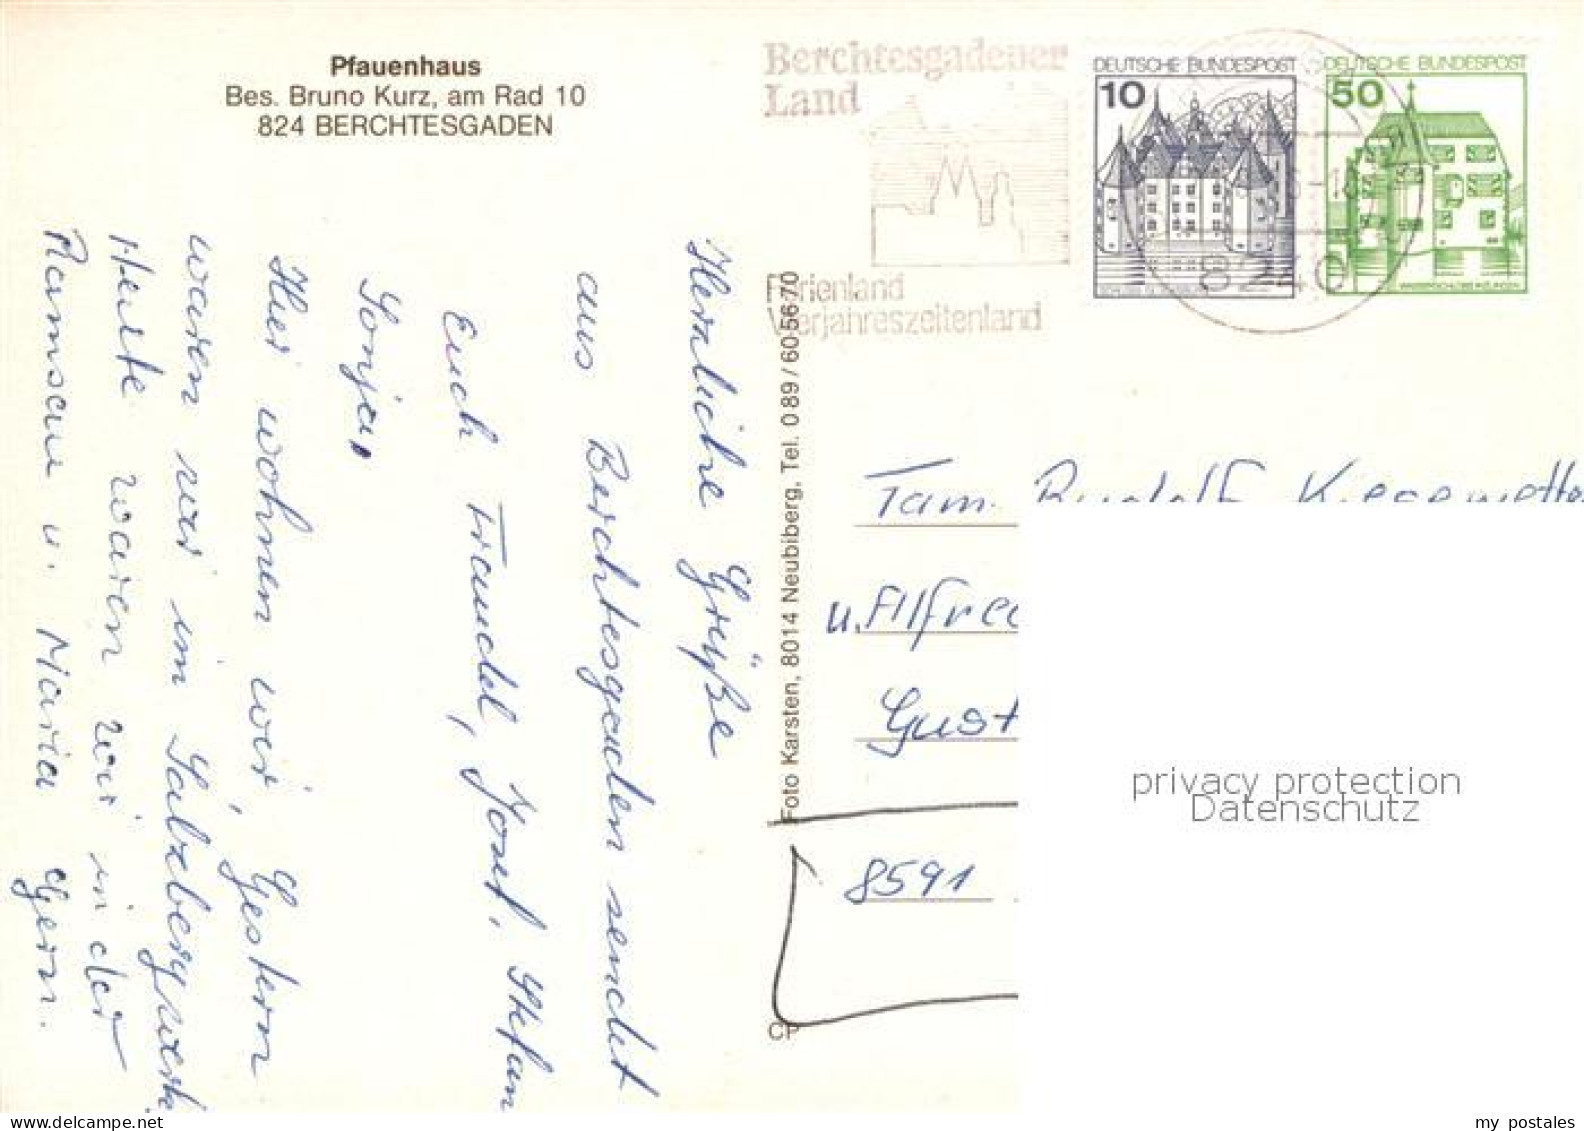 Pfauenhaus
Bes. Bruno Kurz, am Rad 10
824 BERCHTESGADEN
Berchtesgadener
Land
Ferienland
Vierjahreszeitenland
DEUTSCHE BUNDESPOST
10
DEUTSCHE BUNDESPOST
50
8240
Herzliche Grüße
aus Berchtesgaden sendet
Euch Traudel, Josef, Stefan
Sonja,
Hier wohnen wir, Gestern
waren wir im Salzbergwerk
Heute waren wir in der
Ramsau u. Maria Gern.
Foto Karsten, 8014 Neubiberg, Tel. 0 89 / 60 56 70
Fam. Rudolf
u. Alfred
Gust
8591
CP
privacy protection
Datenschutz
my postales